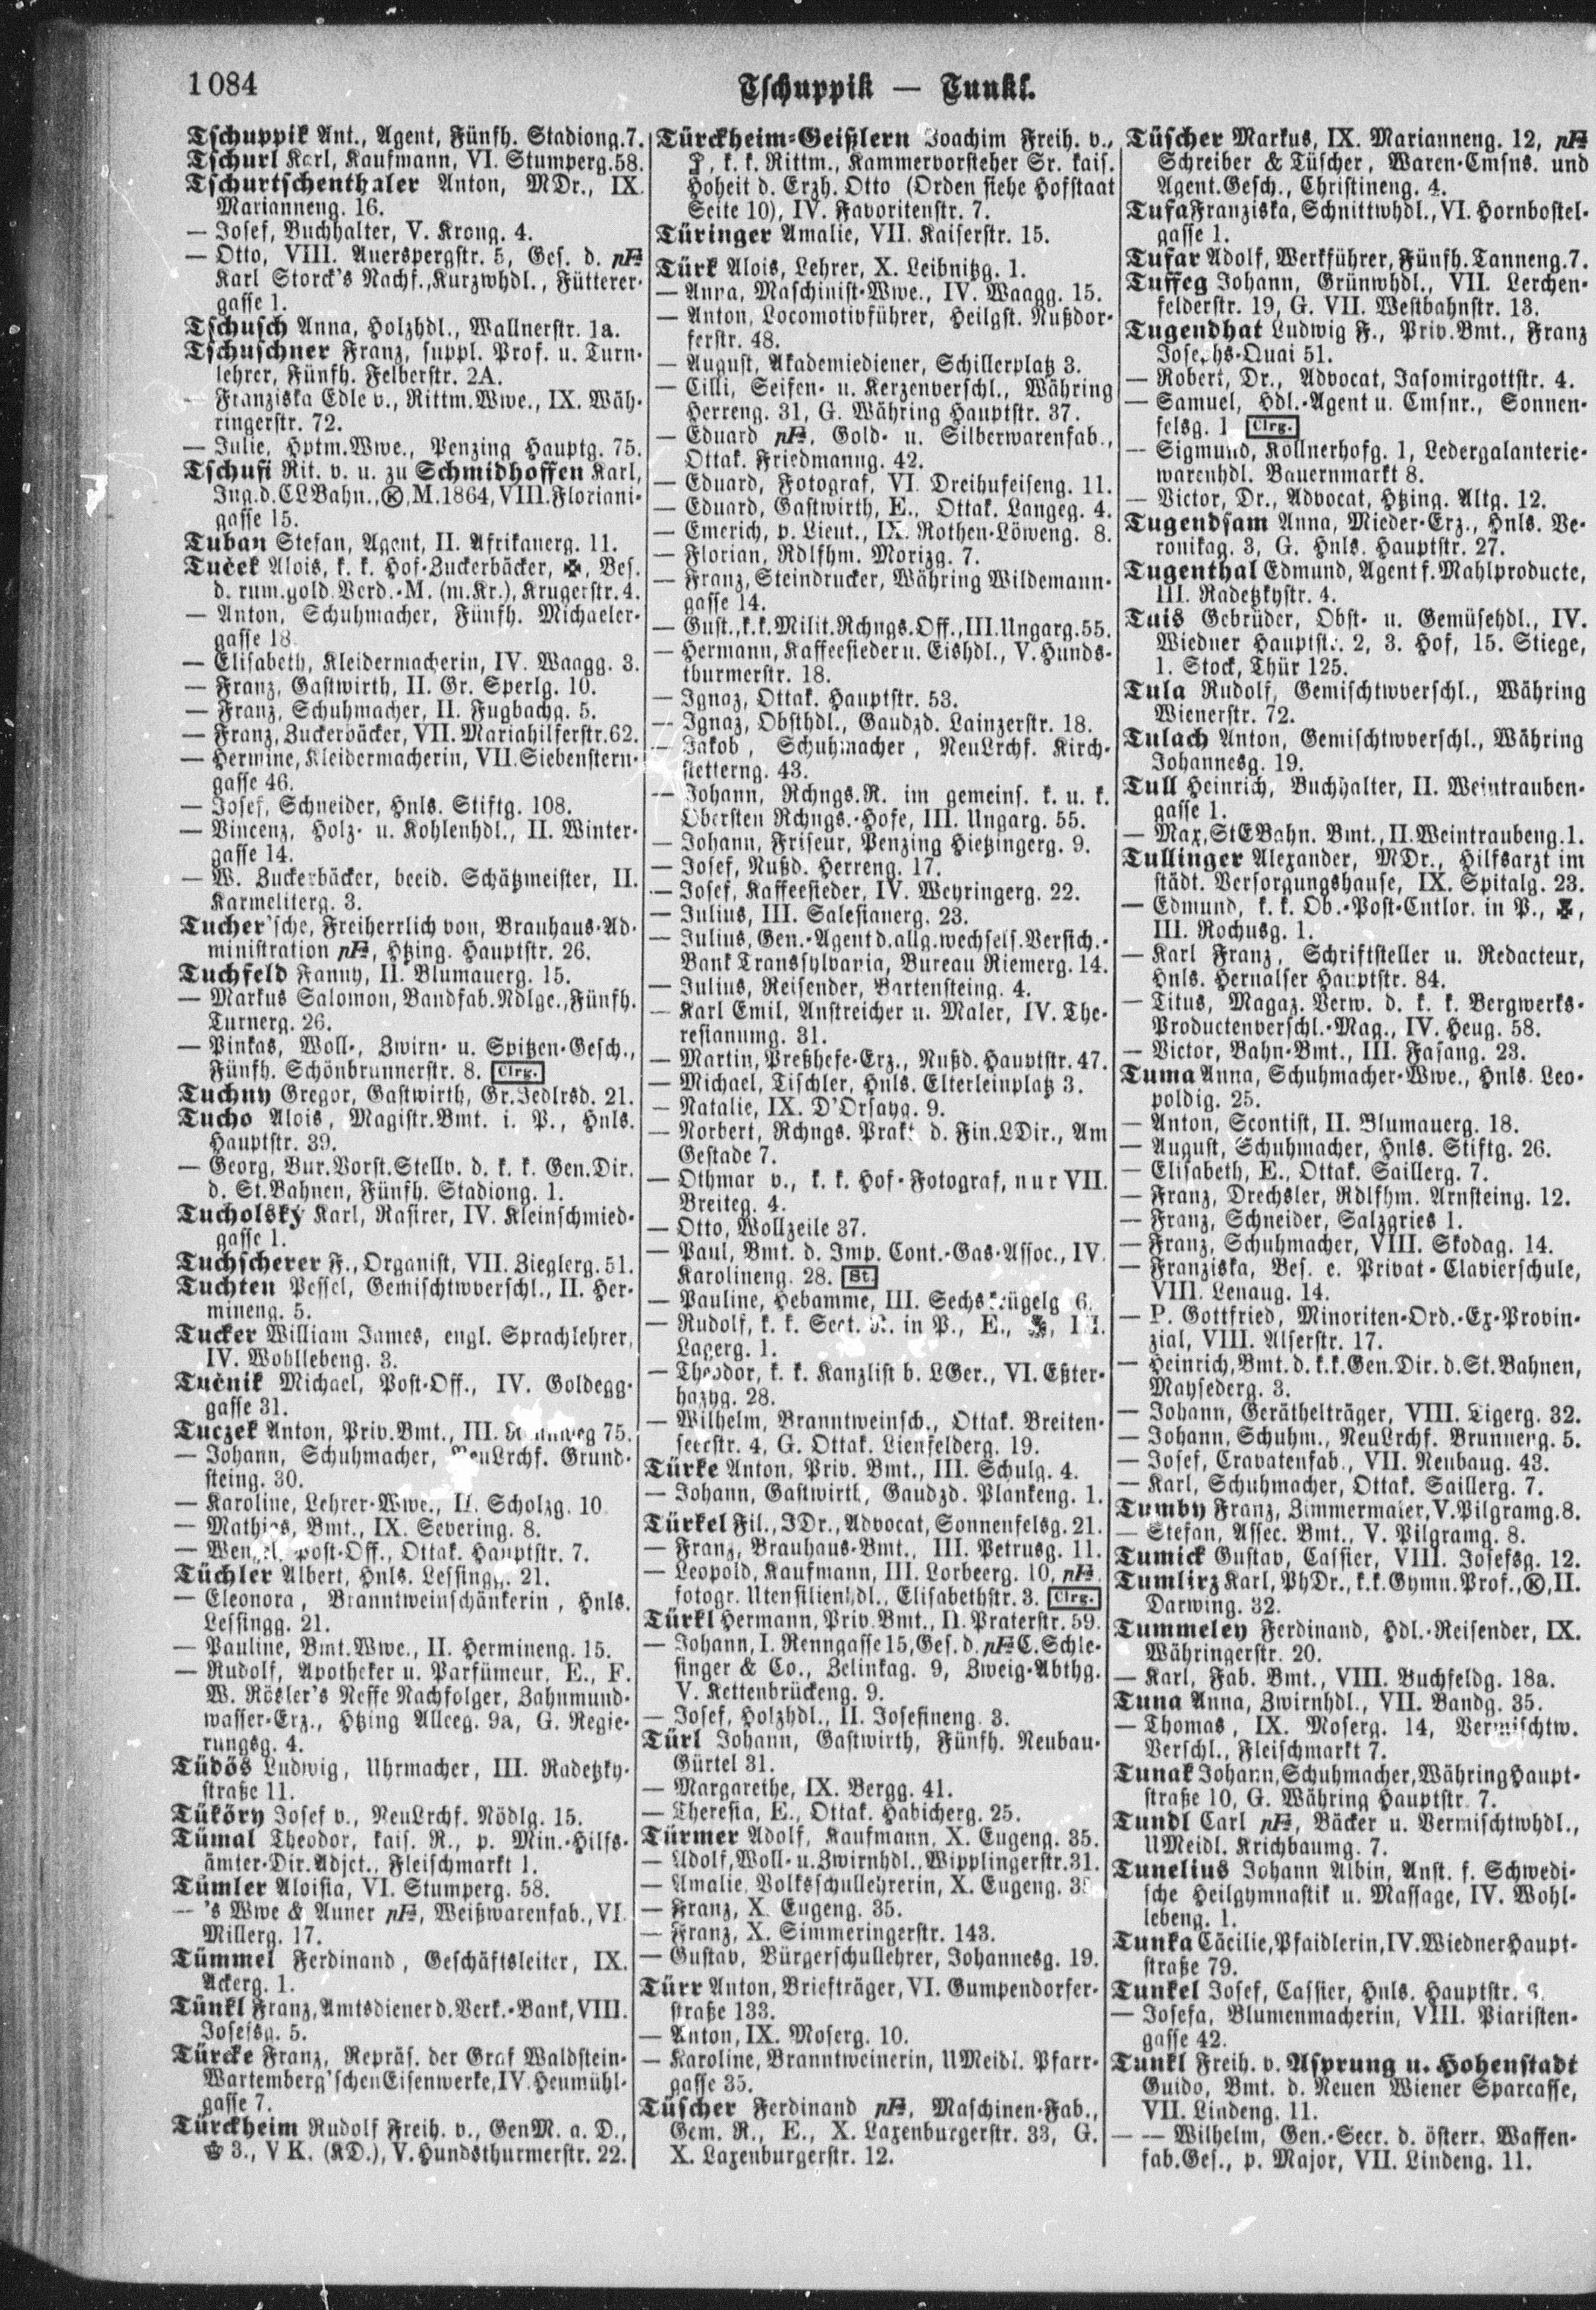 1084
Tschuppik — Tunkl.
Tschuppik Ant., Agent, Fünfh. Stadiong. 7.
Tschurl Karl, Kaufmann, VI. Stumperg. 58.
Tschurtschenthaler Anton, MDr., IX.
Marianneng. 16.
— Josef, Buchhalter, V. Krong. 4.
— Otto, VIII. Auerspergstr. 5, Ges. d. pFa
Karl Storck's Nachf., Kurzwhdl., Fütterer-
gasse 1.
Tschusch Anna, Holzhdl., Wallnerstr. 1a.
Tschuschner Franz, suppl. Prof. u. Turn-
lehrer, Fünfh. Felberstr. 2A.
— Franziska Edle v., Rittm.Wwe., IX. Wäh-
ringerstr. 72.
— Julie, Hptm.Wwe., Penzing Hauptg. 75.
Tschusi Rit. v. u. zu Schmidhoffen Karl,
Ing. d. CLBahn., Ⓚ, M. 1864, VIII. Floriani-
gasse 15.
Tuban Stefan, Agent, II. Afrikanerg. 11.
Tuček Alois, k. k. Hof-Zuckerbäcker, ✠, Bes.
d. rum. gold. Verd.-M. (m. Kr.), Krugerstr. 4.
— Anton, Schuhmacher, Fünfh. Michaeler-
gasse 18.
— Elisabeth, Kleidermacherin, IV. Waagg. 3.
— Franz, Gastwirth, II. Gr. Sperlg. 10.
— Franz, Schuhmacher, II. Fugbachg. 5.
— Franz, Zuckerbäcker, VII. Mariahilferstr. 62.
— Hermine, Kleidermacherin, VII. Siebenstern-
gasse 46.
— Josef, Schneider, Hnls. Stiftg. 108.
— Vincenz, Holz- u. Kohlenhdl., II. Winter-
gasse 14.
— W. Zuckerbäcker, beeid. Schätzmeister, II.
Karmeliterg. 3.
Tucher'sche, Freiherrlich von, Brauhaus-Ad-
ministration pFa, Htzing. Hauptstr. 26.
Tuchfeld Fanny, II. Blumauerg. 15.
— Markus Salomon, Bandfab.Ndlge., Fünfh.
Turnerg. 26.
— Pinkas, Woll-, Zwirn- u. Spitzen-Gesch.,
Fünfh. Schönbrunnerstr. 8. Clrg.
Tuchny Gregor, Gastwirth, Gr.Jedlrsd. 21.
Tucho Alois, Magistr.Bmt. i. P., Hnls.
Hauptstr. 39.
— Georg, Bur.Vorst.Stellv. d. k. k. Gen.Dir.
d. St.Bahnen, Fünfh. Stadiong. 1.
Tucholsky Karl, Rasirer, IV. Kleinschmied-
gasse 1.
Tuchscherer F., Organist, VII. Zieglerg. 51.
Tuchten Pessel, Gemischtwverschl., II. Her-
mineng. 5.
Tucker William James, engl. Sprachlehrer,
IV. Wohllebeng. 3.
Tučnik Michael, Post-Off., IV. Goldegg-
gasse 31.
Tuczek Anton, Priv.Bmt., III. 75.
— Johann, Schuhmacher, NeuLrchf. Grund-
steing. 30.
— Karoline, Lehrer-Wwe., II. Scholzg. 10.
— Mathias, Bmt., IX. Severing. 8.
— Wenzel, Post-Off., Ottak. Hauptstr. 7.
Tüchler Albert, Hnls. Lessingg. 21.
— Eleonora, Branntweinschänkerin, Hnls.
Lessingg. 21.
— Pauline, Bmt.Wwe., II. Hermineng. 15.
— Rudolf, Apotheker u. Parfümeur, E., F.
W. Rösler's Neffe Nachfolger, Zahnmund-
wasser-Erz., Htzing Alleeg. 9a, G. Regie-
rungsg. 4.
Tüdös Ludwig, Uhrmacher, III. Radetzky-
straße 11.
Tüköry Josef v., NeuLrchf. Nödlg. 15.
Tümal Theodor, kais. R., p. Min.-Hilfs-
ämter-Dir.Adjct., Fleischmarkt 1.
Tümler Aloisia, VI. Stumperg. 58.
— 's Wwe & Auner pFa, Weißwarenfab., VI.
Millerg. 17.
Tümmel Ferdinand, Geschäftsleiter, IX.
Ackerg. 1.
Tünkl Franz, Amtsdiener d. Verk.-Bank, VIII.
Josefsg. 5.
Türcke Franz, Repräs. der Graf Waldstein-
Wartemberg'schen Eisenwerke, IV. Heumühl-
gasse 7.
Türckheim Rudolf Freih. v., GenM. a. D.,
3., V K. (KD.), V. Hundsthurmerstr. 22.
Türckheim-Geißlern Joachim Freih. v.,
k. k. Rittm., Kammervorsteher Sr. kais.
Hoheit d. Erzh. Otto (Orden siehe Hofstaat
Seite 10), IV. Favoritenstr. 7.
Türinger Amalie, VII. Kaiserstr. 15.
Türk Alois, Lehrer, X. Leibnitzg. 1.
— Anna, Maschinist-Wwe., IV. Waagg. 15.
— Anton, Locomotivführer, Heilgst. Nußdor-
ferstr. 48.
— August, Akademiediener, Schillerplatz 3.
— Cilli, Seifen- u. Kerzenverschl., Währing
Herreng. 31, G. Währing Hauptstr. 37.
— Eduard pFa, Gold- u. Silberwarenfab.,
Ottak. Friedmanng. 42.
— Eduard, Fotograf, VI. Dreihufeiseng. 11.
— Eduard, Gastwirth, E., Ottak. Langeg. 4.
— Emerich, p. Lieut., IX. Rothen-Löweng. 8.
— Florian, Rdlfhm. Morizg. 7.
— Franz, Steindrucker, Währing Wildemann-
gasse 14.
— Gust., k. k. Milit.Rchngs.Off., III. Ungarg. 55.
— Hermann, Kaffeesieder u. Eishdl., V. Hunds-
thurmerstr. 18.
— Ignaz, Ottak. Hauptstr. 53.
— Ignaz, Obsthdl., Gaudzd. Lainzerstr. 18.
— Jakob, Schuhmacher, NeuLrchf. Kirch-
stetterng. 43.
— Johann, Rchngs.R. im gemeins. k. u. k.
Obersten Rchngs.-Hofe, III. Ungarg. 55.
— Johann, Friseur, Penzing Hietzingerg. 9.
— Josef, Nußd. Herreng. 17.
— Josef, Kaffeesieder, IV. Weyringerg. 22.
— Julius, III. Salesianerg. 23.
— Julius, Gen.-Agent d. allg. wechsels. Versich.-
Bank Transsylvania, Bureau Riemerg. 14.
— Julius, Reisender, Bartensteing. 4.
— Karl Emil, Anstreicher u. Maler, IV. The-
resianumg. 31.
— Martin, Preßhefe-Erz., Nußd. Hauptstr. 47.
— Michael, Tischler, Hnls. Elterleinplatz 3.
— Natalie, IX. D'Orsayg. 9.
— Norbert, Rchngs. Prakt. d. Fin.LDir., Am
Gestade 7.
— Othmar v., k. k. Hof-Fotograf, nur VII.
Breiteg. 4.
— Otto, Wollzeile 37.
— Paul, Bmt. d. Imp. Cont.-Gas-Assoc., IV.
Karolineng. 28. St.
— Pauline, Hebamme, III. Sechskrügelg. 6.
— Rudolf, k. k. Sect. R. in P., E., III.
Lagerg. 1.
— Theodor, k. k. Kanzlist b. LGer., VI. Eßter-
hazyg. 28.
— Wilhelm, Branntweinsch., Ottak. Breiten-
seerstr. 4, G. Ottak. Lienfelderg. 19.
Türke Anton, Priv. Bmt., III. Schulg. 4.
— Johann, Gastwirth, Gaudzd. Plankeng. 1.
Türkel Fil., JDr., Advocat, Sonnenfelsg. 21.
— Franz, Brauhaus-Bmt., III. Petrusg. 11.
— Leopold, Kaufmann, III. Lorbeerg. 10, pFa.
fotogr. Utensilienhdl., Elisabethstr. 3. Clrg.
Türkl Hermann, Priv.Bmt., II. Praterstr. 59.
— Johann, I. Renngasse 15, Ges. d. pFa C. Schle-
singer & Co., Zelinkag. 9, Zweig-Abthg.
V. Kettenbrückeng. 9.
— Josef, Holzhdl., II. Josefineng. 3.
Türl Johann, Gastwirth, Fünfh. Neubau-
Gürtel 31.
— Margarethe, IX. Bergg. 41.
— Theresia, E., Ottak. Habicherg. 25.
Türmer Adolf, Kaufmann, X. Eugeng. 35.
— Adolf, Woll- u. Zwirnhdl., Wipplingerstr. 31.
— Amalie, Volksschullehrerin, X. Eugeng.
— Franz, X. Eugeng. 35.
— Franz, X. Simmeringerstr. 143.
— Gustav, Bürgerschullehrer, Johannesg. 19.
Türr Anton, Briefträger, VI. Gumpendorfer-
straße 133.
— Anton, IX. Moserg. 10.
— Karoline, Branntweinerin, UMeidl. Pfarr-
gasse 35.
Tüscher Ferdinand pFa, Maschinen-Fab.,
Gem. R., E., X. Laxenburgerstr. 33, G.
X. Laxenburgerstr. 12.
Tüscher Markus, IX. Marianneng. 12, pFa
Schreiber & Tüscher, Waren-Cmsns. und
Agent.Gesch., Christineng. 4.
Tufa Franziska, Schnittwhdl., VI. Hornbostel-
gasse 1.
Tufar Adolf, Werkführer, Fünfh. Tanneng. 7.
Tuffeg Johann, Grünwhdl., VII. Lerchen-
felderstr. 19, G. VII. Westbahnstr. 13.
Tugendhat Ludwig F., Priv.Bmt., Franz
Josephs-Quai 51.
— Robert, Dr., Advocat, Jasomirgottstr. 4.
— Samuel, Hdl.-Agent u. Cmsnr., Sonnen-
felsg. 1. Clrg.
— Sigmund, Köllnerhofg. 1, Ledergalanterie-
warenhdl. Bauernmarkt 8.
— Victor, Dr., Advocat, Htzing. Altg. 12.
Tugendsam Anna, Mieder-Erz., Hnls. Ve-
ronikag. 3, G. Hnls. Hauptstr. 27.
Tugenthal Edmund, Agent f. Mahlproducte,
III. Radetzkystr. 4.
Tuis Gebrüder, Obst- u. Gemüsehdl., IV.
Wiedner Hauptstr. 2, 3. Hof, 15. Stiege,
1. Stock, Thür 125.
Tula Rudolf, Gemischtwverschl., Währing
Wienerstr. 72.
Tulach Anton, Gemischtwverschl., Währing
Johannesg. 19.
Tull Heinrich, Buchhalter, II. Weintrauben-
gasse 1.
— Max, StEBahn. Bmt., II. Weintraubeng. 1.
Tullinger Alexander, MDr., Hilfsarzt im
städt. Versorgungshause, IX. Spitalg. 23.
— Edmund, k. k. Ob.-Post-Cntlor. in P.,
III. Rochusg. 1.
— Karl Franz, Schriftsteller u. Redacteur,
Hnls. Hernalser Hauptstr. 84.
— Titus, Magaz. Verw. d. k. k. Bergwerks-
Productenverschl.-Mag., IV. Heug. 58.
— Victor, Bahn-Bmt., III. Fasang. 23.
Tuma Anna, Schuhmacher-Wwe., Hnls. Leo-
poldig. 25.
— Anton, Scontist, II. Blumauerg. 18.
— August, Schuhmacher, Hnls. Stiftg. 26.
— Elisabeth, E., Ottak. Saillerg. 7.
— Franz, Drechsler, Rdlfhm. Arnsteing. 12.
— Franz, Schneider, Salzgries 1.
— Franz, Schuhmacher, VIII. Skodag. 14.
— Franziska, Bes. e. Privat-Clavierschule,
VIII. Lenaug. 14.
— P. Gottfried, Minoriten-Ord.-Ex-Provin-
zial, VIII. Alserstr. 17.
— Heinrich, Bmt. d. k. k. Gen. Dir. d. St.Bahnen,
Maysederg. 3.
— Johann, Geräthelträger, VIII. Tigerg. 32.
— Johann, Schuhm., NeuLrchf. Brunnerg. 5.
— Josef, Cravatenfab., VII. Neubaug. 43.
— Karl, Schuhmacher, Ottak. Saillerg. 7.
Tumby Franz, Zimmermaler, V. Pilgramg. 8.
— Stefan, Assec. Bmt., V. Pilgramg. 8.
Tumick Gustav, Cassier, VIII. Josefsg. 12.
Tumlirz Karl, PhDr., k. k. Gymn. Prof., Ⓚ, II.
Darwing. 32.
Tummeley Ferdinand, Hdl.-Reisender, IX.
Währingerstr. 20.
— Karl, Fab. Bmt., VIII. Buchfeldg. 18a.
Tuna Anna, Zwirnhdl., VII. Bandg. 35.
— Thomas, IX. Moserg. 14, Vermischtw.
Verschl., Fleischmarkt 7.
Tunak Johann, Schuhmacher, Währing Haupt-
straße 10, G. Währing Hauptstr. 7.
Tundl Carl pFa, Bäcker u. Vermischtwhdl.,
UMeidl. Krichbaumg. 7.
Tunelius Johann Albin, Anst. f. Schwedi-
sche Heilgymnastik u. Massage, IV. Wohl-
lebeng. 1.
Tunka Cäcilie, Pfaidlerin, IV. Wiedner Haupt-
straße 79.
Tunkel Josef, Cassier, Hnls. Hauptstr.
— Josefa, Blumenmacherin, VIII. Piaristen-
gasse 42.
Tunkl Freih. v. Asprung u. Hohenstadt
Guido, Bmt. d. Neuen Wiener Sparcasse,
VII. Lindeng. 11.
— — Wilhelm, Gen.-Secr. d. österr. Waffen-
fab.Ges., p. Major, VII. Lindeng. 11.